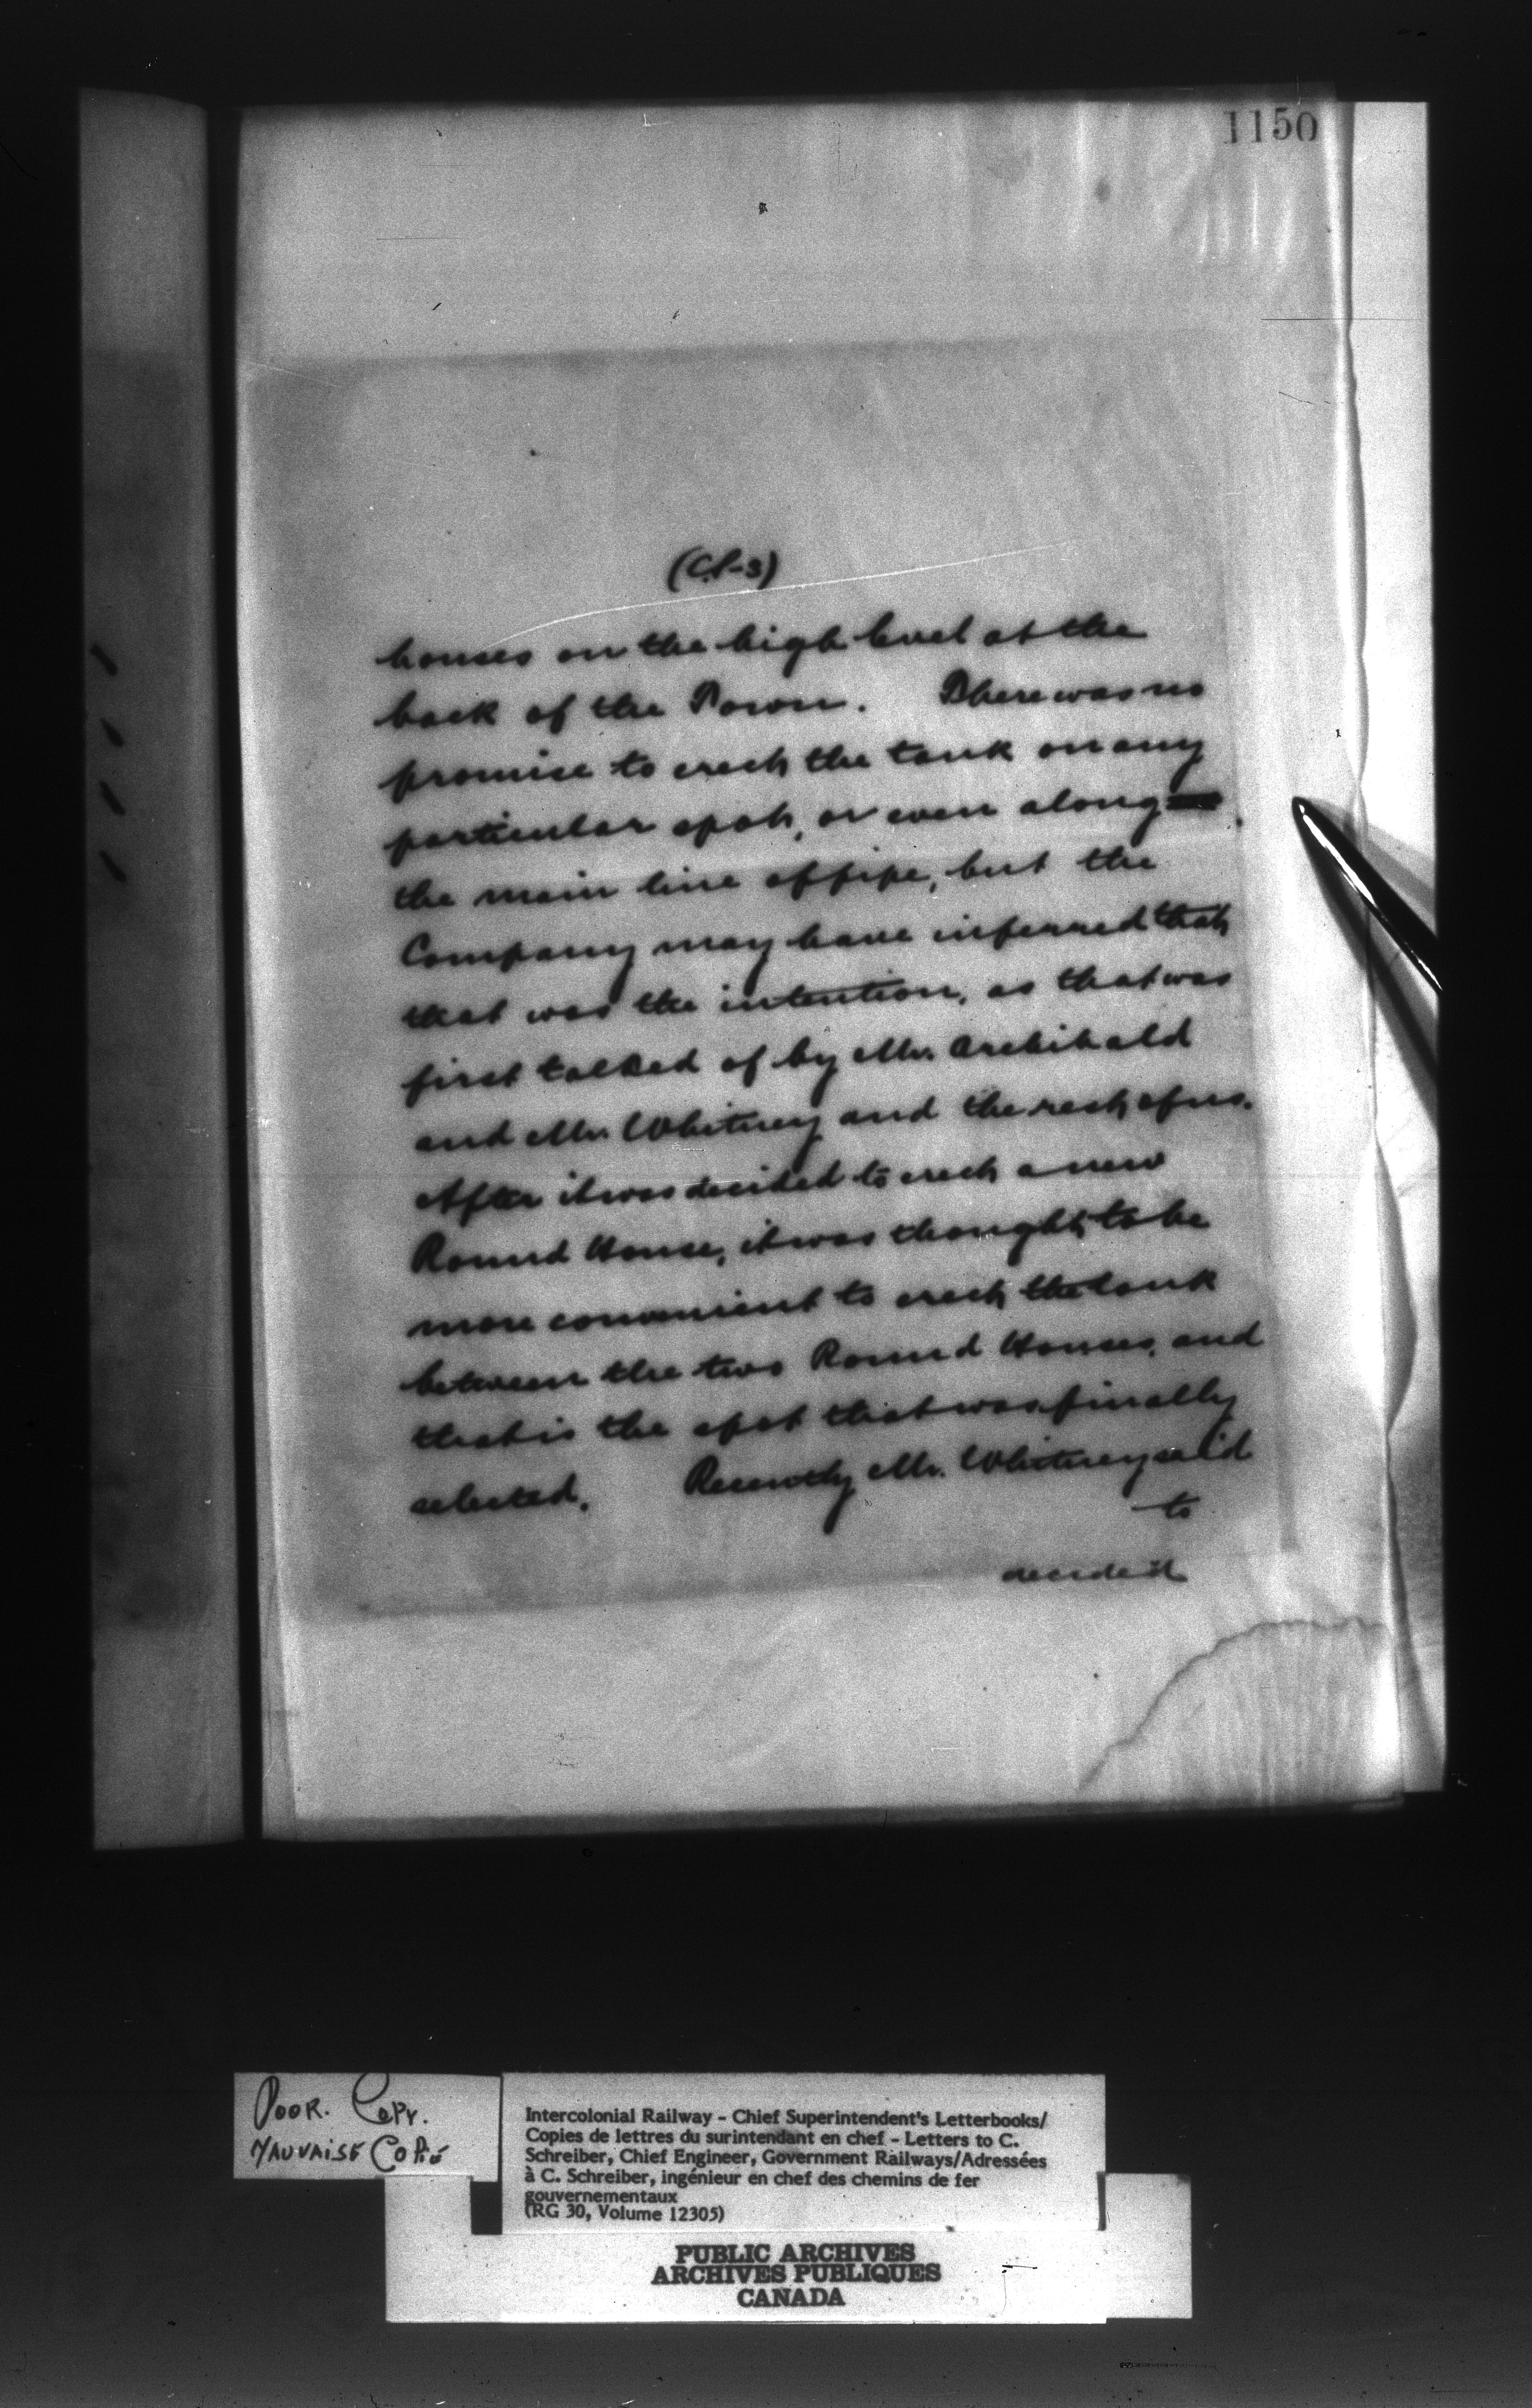 1150
(C.P-3)
houses on the high level at the
back of the Town. There was no
promise to erect the tank on any
particular spot, or even along
the main line of pipe, but the
Company may have inferred that
that was the intention, as that was
first talked of by Mr. Archibald
and Mr. Whitney and the rest of us.
After it was decided to erect a new
Round House, it was thought to be
more convenient to erect the tank
between the two Round Houses, and
that is the spot that was finally
selected. Recently Mr. Whitney said
to
POOR. COPY.
MAUVAISE COPIE
Intercolonial Railway - Chief Superintendent's Letterbooks/
Copies de lettres du surintendant en chef - Letters to C.
Schreiber, Chief Engineer, Government Railways/Adressées
à C. Schreiber, ingénieur en chef des chemins de fer
gouvernementaux
(RG 30, Volume 12305)
PUBLIC ARCHIVES
ARCHIVES PUBLIQUES
CANADA